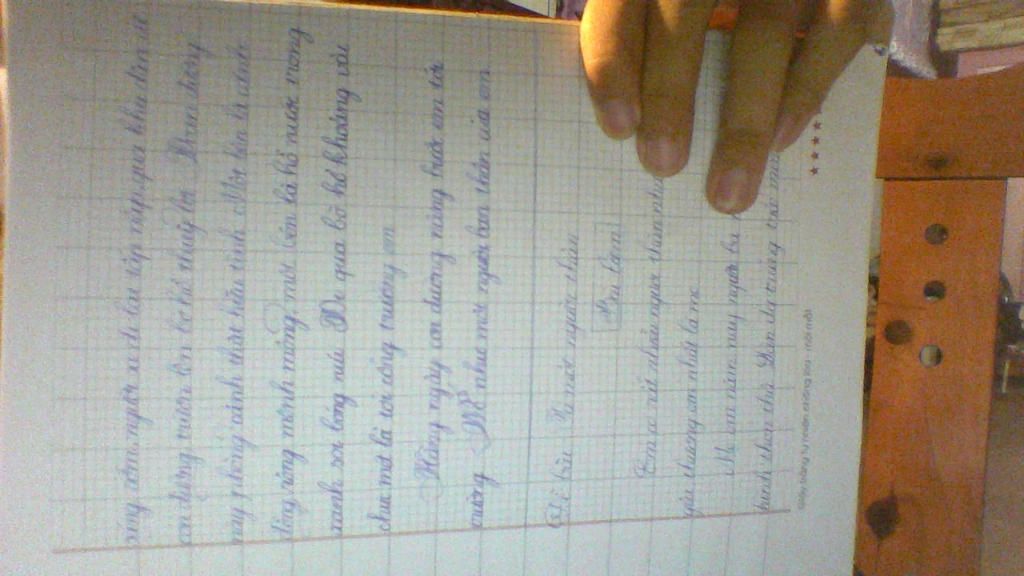 sóng sớm, người xe đi lại tấp nập qua khu dân
con đường ven bờ hồ thuỷ lợi
nay phong cảnh thật hữu tình Một bên là cánh
đồng rộng mênh mông, một bên là hồ nước trong
xanh soi bóng núi Đi qua bờ hồ khoảng vài
chục mét là tới cổng trường em
Hằng ngày con đường nâng bước em tới
trường Nó như một người bạn thân của em
Đề bài Tả một người thân
Bài làm
Em có rất nhiều người thân nhưng
yêu thương em nhất là mẹ
Mẹ em năm nay ngoài ba
hình thon thả Làn da trắng
Giấy trắng tự nhiên không lóa - mỏi mắt